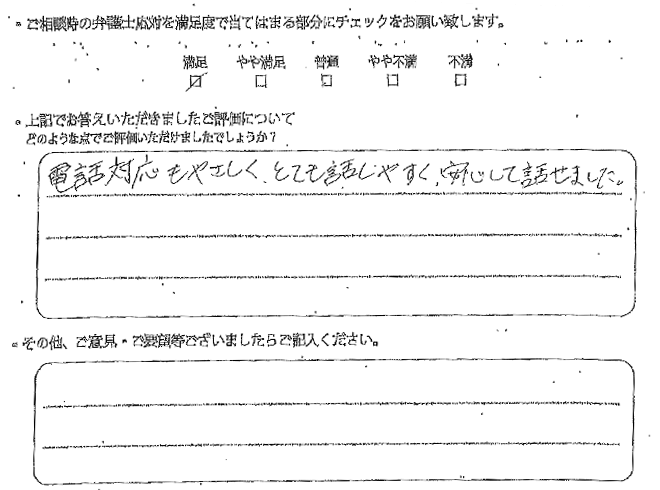 。ご相談時の弁護士応対を満足度で当てはまる部分にチェックをお願い致します。
満足 やや満足 普通 やや不満 不満
☑ □ □ □ □
。上記でお答えいただきましたご評価について
どのような点でご評価いただけましたでしょうか?
電話対応もやさしく、とても話しやすく、安心して話せました。
。その他、ご意見・ご要望等ございましたらご記入ください。